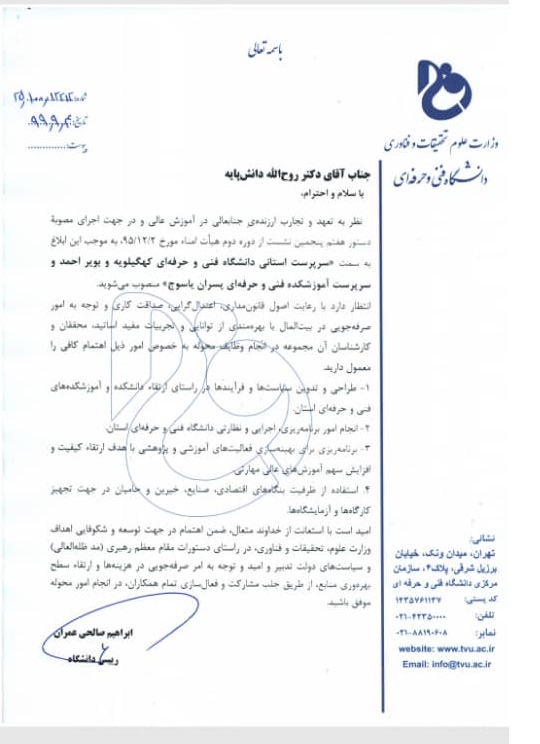 باسمه تعالی
وزارت علوم تحقیقات و فناوری
دانشگاه فنی و حرفه‌ای
جناب آقای دکتر روح‌الله دانش‌پایه
با سلام و احترام،
نظر به تعهد و تجارب ارزنده‌ی جنابعالی در آموزش عالی و در جهت اجرای مصوبهٔ
دستور هفتم پنجمین نشست از دوره دوم هیأت امناء مورخ ۹۵/۱۲/۲، به موجب این ابلاغ
به سمت «سرپرست استانی دانشگاه فنی و حرفه‌ای کهگیلویه و بویر احمد و
سرپرست آموزشکده فنی و حرفه‌ای پسران یاسوج» منصوب می‌شوید.
انتظار دارد با رعایت اصول قانون‌مداری، اعتدال‌گرایی، صداقت کاری و توجه به امور
صرفه‌جویی در بیت‌المال با بهره‌مندی از توانایی و تجربیات مفید اساتید، محققان و
کارشناسان آن مجموعه در انجام وظایف محوله به خصوص امور ذیل اهتمام کافی را
معمول دارید.
۱- طراحی و تدوین سیاست‌ها و فرآیندها در راستای ارتقاء دانشکده و آموزشکده‌های
فنی و حرفه‌ای استان.
۲- انجام امور برنامه‌ریزی، اجرایی و نظارتی دانشگاه فنی و حرفه‌ای استان.
۳- برنامه‌ریزی برای بهینه‌سازی فعالیت‌های آموزشی و پژوهشی با هدف ارتقاء کیفیت و
افزایش سهم آموزش‌های عالی مهارتی.
۴. استفاده از ظرفیت بنگاه‌های اقتصادی، صنایع، خیرین و حامیان در جهت تجهیز
کارگاه‌ها و آزمایشگاه‌ها.
امید است با استعانت از خداوند متعال، ضمن اهتمام در جهت توسعه و شکوفایی اهداف
وزارت علوم، تحقیقات و فناوری، در راستای دستورات مقام معظم رهبری (مد ظله‌العالی)
و سیاست‌های دولت تدبیر و امید و توجه به امر صرفه‌جویی در هزینه‌ها و ارتقاء سطح
بهره‌وری منابع، از طریق جلب مشارکت و فعال‌سازی تمام همکاران، در انجام امور محوله
موفق باشید.
ابراهیم صالحی عمران
رییس دانشگاه
نشانی:
تهران، میدان ونک، خیابان
برزیل شرقی، پلاک۴، سازمان
مرکزی دانشگاه فنی و حرفه ای
کد پستی: ۱۴۳۵۷۶۱۱۳۷
تلفن: ۰۲۱-۴۲۳۵۰۰۰۰
نمابر: ۰۲۱-۸۸۱۹۰۶۰۸
website: www.tvu.ac.ir
Email: info@tvu.ac.ir